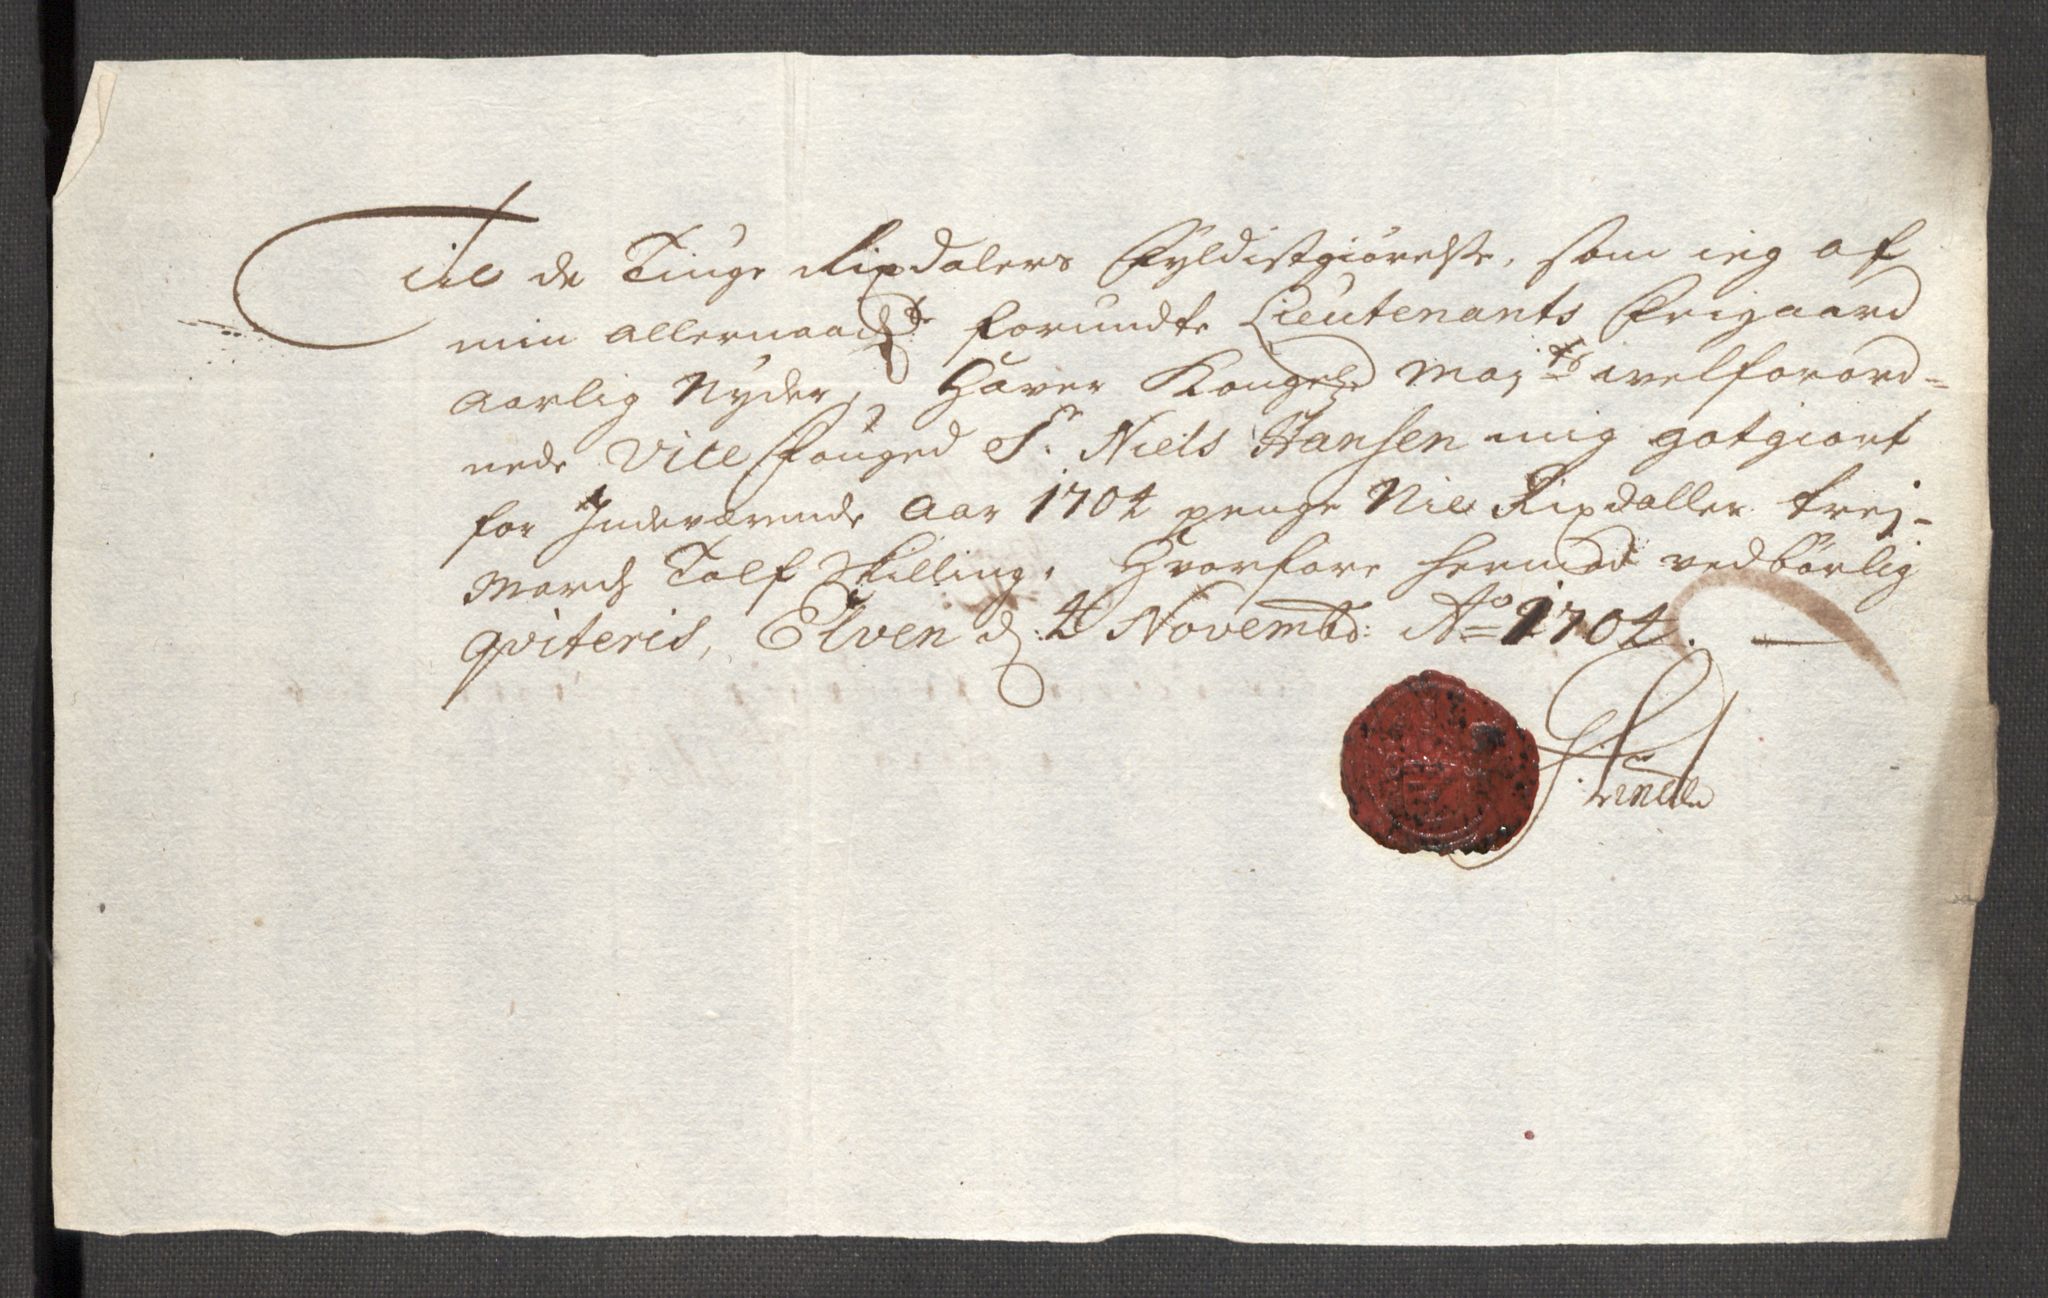 Til de Tiuge Rixdalers Fyldistgiørelse, som ieg af
min allernaadste forundte Lieutenants Frigaard
aarlig Nyder, Haver Kongel Maj:ts welforord-
nede Vice Fouged Sr. Niels Hansen mig gotgiort
for Indeværende Aar 1704 penge Nie Rixdaller trej-
March Tolf Skilling. Hvorfore hermed vedbørlig
qviteris, Elven d. 4 Novembr: Ao 1704.